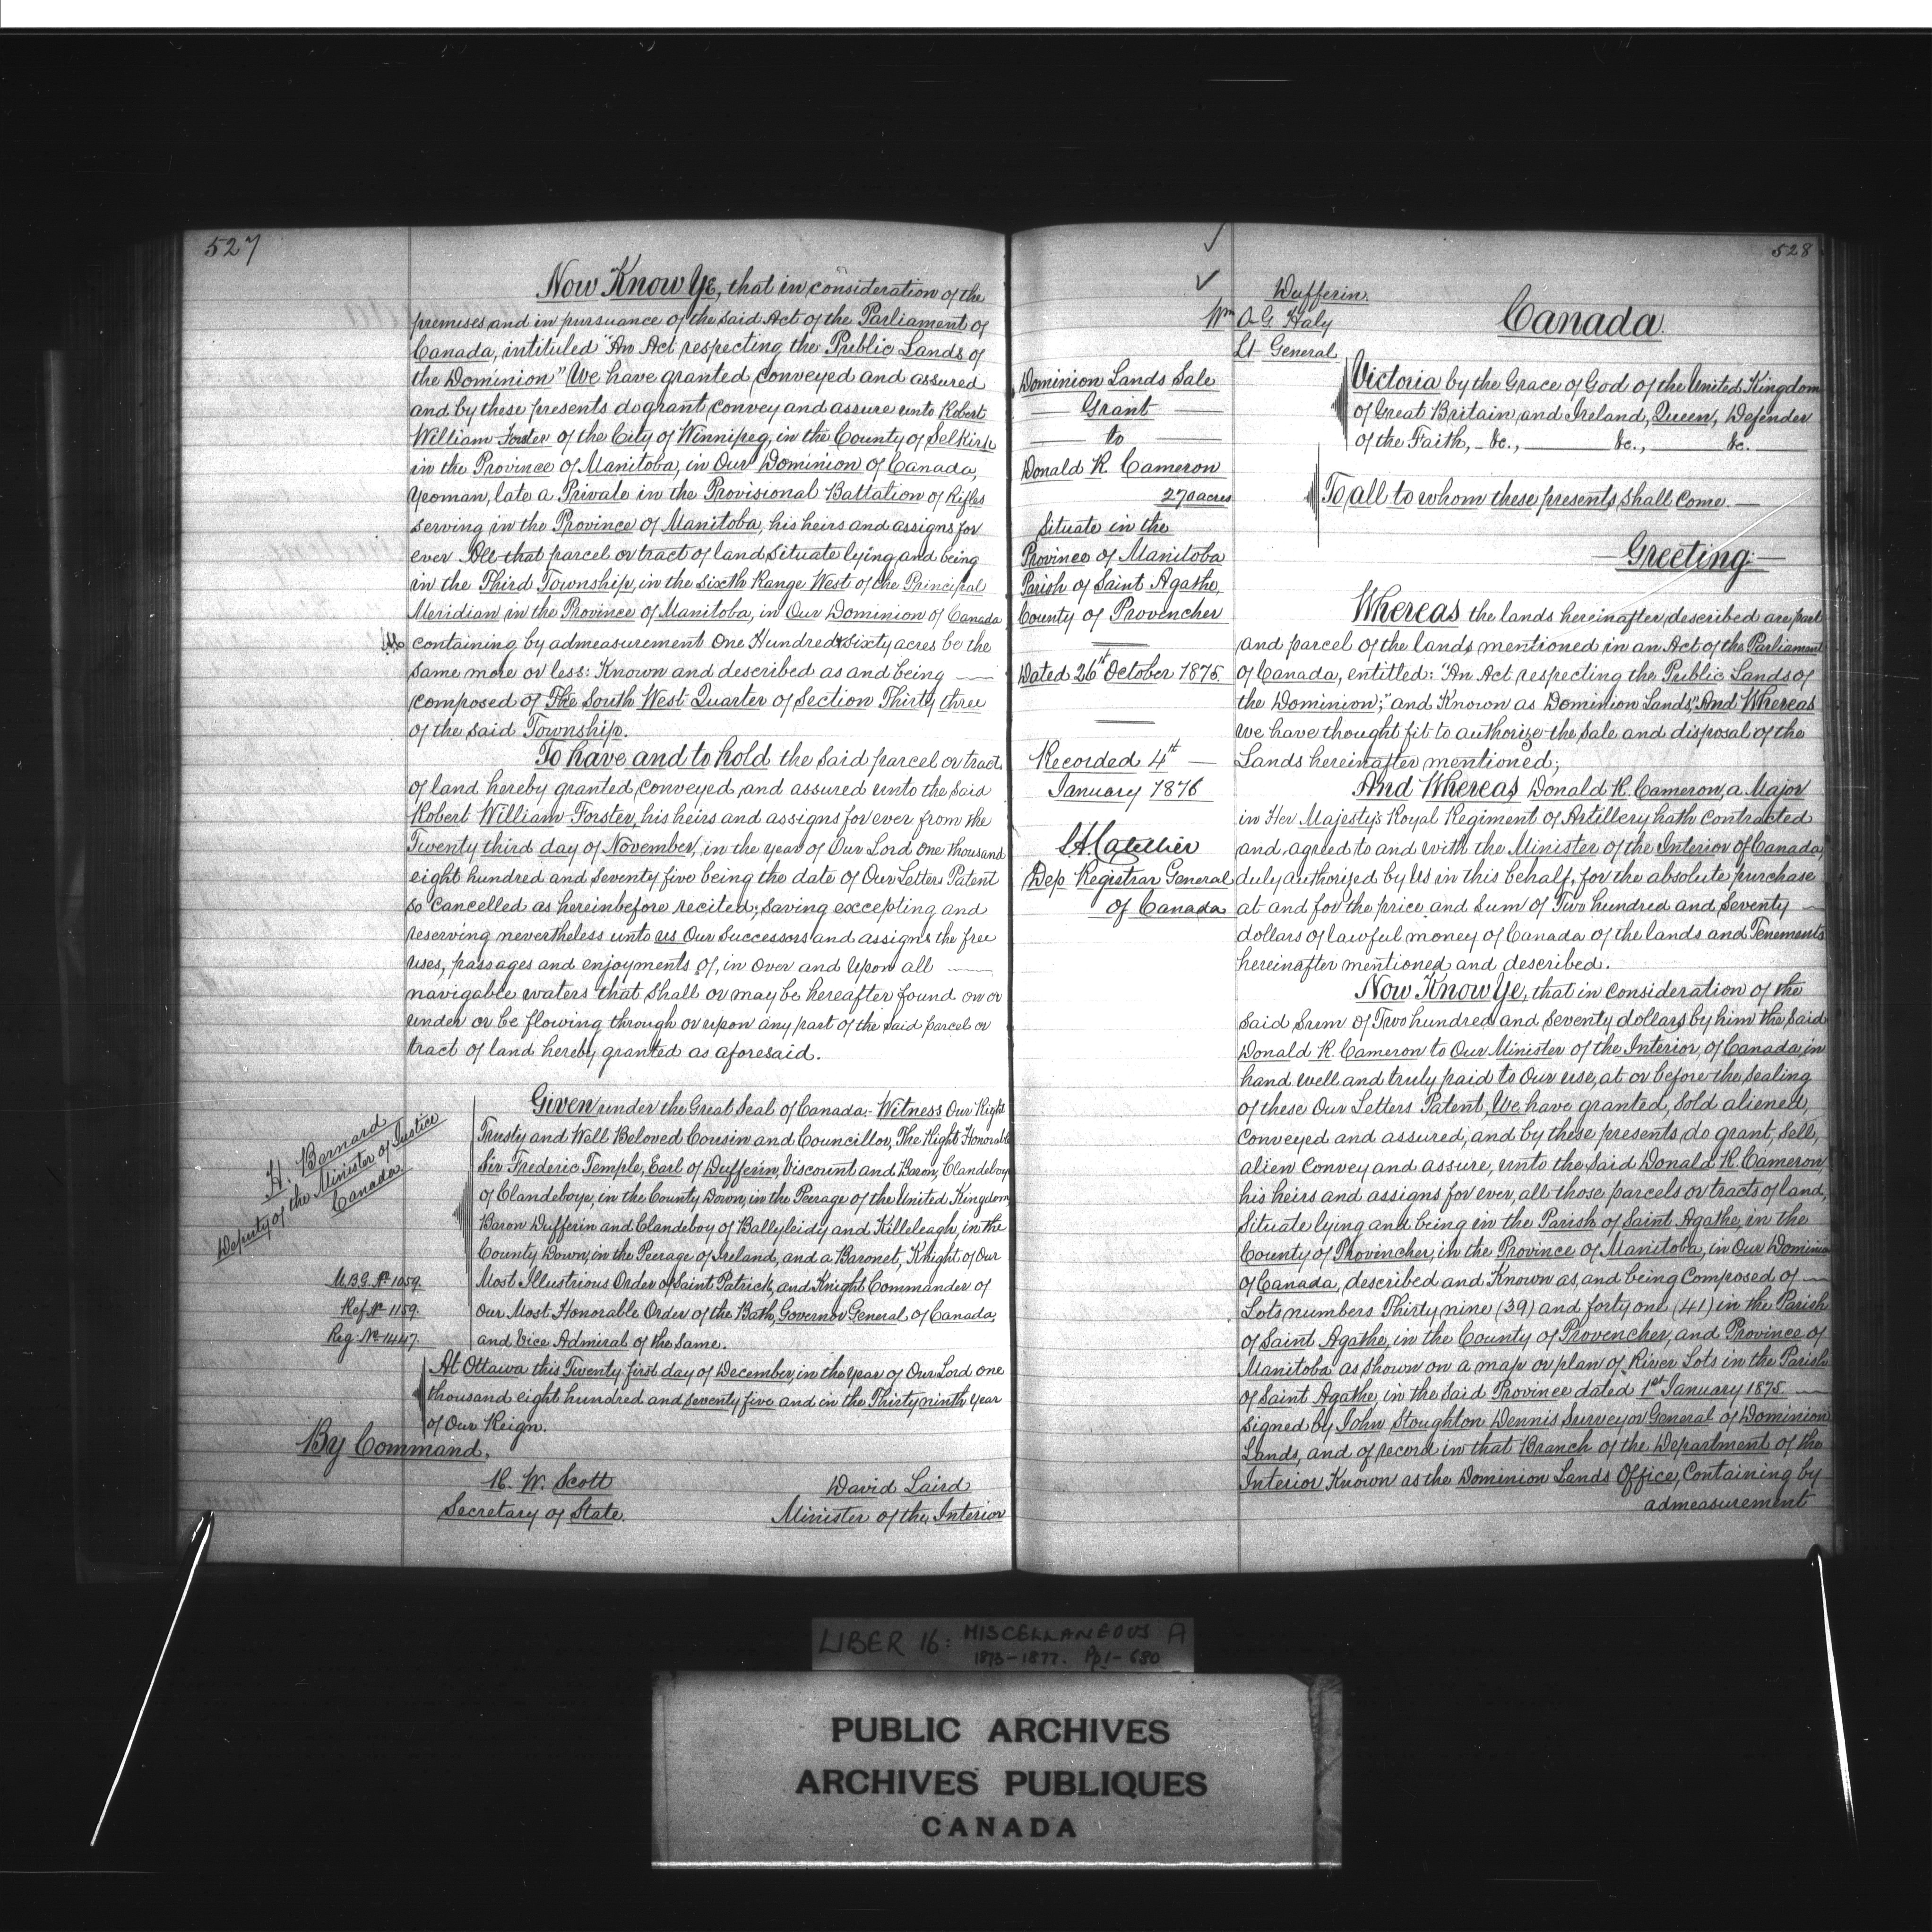 527
Now Know Ye, that in consideration of the
premises and in pursuance of the said Act of the Parliament of
Canada, intituled "An Act respecting the Public Lands of
the Dominion" We have granted conveyed and assured
and by these presents do grant convey and assure unto Robert
William Forster of the City of Winnipeg, in the County of Selkirk
in the Province of Manitoba, in Our Dominion of Canada,
Yeoman, late a Private in the Provisional Battalion of Rifles
serving in the Province of Manitoba, his heirs and assigns for
ever All that parcel or tract of land Situate lying and being
in the Third Township, in the Sixth Range West of the Principal
Meridian in the Province of Manitoba, in Our Dominion of Canada
containing by admeasurement One Hundred & Sixty acres be the
same more or less: Known and described as and being
composed of The South West Quarter of Section Thirty three
of the said Township.
To have and to hold the said parcel or tract
of land hereby granted conveyed and assured unto the said
Robert William Forster, his heirs and assigns for ever from the
Twenty third day of November, in the year of Our Lord one thousand
eight hundred and seventy five being the date of Our Letters Patent
so cancelled as hereinbefore recited; saving excepting and
reserving nevertheless unto us Our Successors and assigns the free
uses, passages and enjoyments of, in over and upon all
navigable waters that shall or may be hereafter found on or
under or be flowing through or upon any part of the said parcel or
tract of land hereby granted as aforesaid.
Given under the Great Seal of Canada:- Witness Our Right
Trusty and Well Beloved Cousin and Councillor, The Right Honorable
Sir Frederic Temple, Earl of Dufferin, Viscount and Baron, Clandeboye
of Clandeboye, in the County Down, in the Peerage of the United Kingdom,
Baron Dufferin and Clandeboy of Ballyleidy and Killeleagh, in the
County Down, in the Peerage of Ireland, and a Baronet, Knight of Our
Most Illustrious Order of Saint Patrick, and Knight Commander of
our Most Honorable Order of the Bath, Governor General of Canada,
and Vice Admiral of the same.
H. Bernard
Deputy of the Minister of Justice
Canada
M.B.G. No 1059.
Ref. No 1159.
Reg. No 1447.
At Ottawa this Twenty first day of December, in the Year of Our Lord one
thousand eight hundred and seventy five and in the Thirty ninth Year
of Our Reign.
By Command,
R. W. Scott
Secretary of State.
David Laird
Minister of the Interior
528
Dufferin.
Wm O. G. Haly
Lt- General
Canada.
Dominion Lands Sale
Grant
to
Donald R Cameron
270 acres
Situate in the
Province of Manitoba
Parish of Saint Agathe,
County of Provencher
Dated 26th October 1875.
Recorded 4th
January 1876
Dep. Registrar General
of Canada
Victoria by the Grace of God of the United Kingdom
of Great Britain, and Ireland, Queen, Defender
of the Faith, - &c., &c., &c.
To all to whom these presents shall come.
Greeting:
Whereas the lands hereinafter described are part
and parcel of the lands mentioned in an Act of the Parliament
of Canada, entitled: "An Act respecting the Public Lands of
the Dominion;" and Known as Dominion Lands" And Whereas
we have thought fit to authorize the Sale and disposal of the
Lands hereinafter mentioned;
And Whereas Donald R. Cameron, a Major
in Her Majesty's Royal Regiment of Artillery hath contracted
and agreed to and with the Minister of the Interior of Canada,
duly authorized by Us in this behalf, for the absolute purchase
at and for the price and Sum of Two hundred and Seventy
dollars of lawful money of Canada of the lands and Tenements
hereinafter mentioned and described.
Now Know Ye, that in consideration of the
said Sum of Two hundred and Seventy dollars by him the said
Donald R. Cameron to Our Minister of the Interior, of Canada, in
hand well and truly paid to Our use, at or before the sealing
of these Our Letters Patent, We have granted, Sold aliened,
conveyed and assured, and by these presents, do grant, Sell,
alien convey and assure, unto the Said Donald R. Cameron,
his heirs and assigns for ever, all those parcels or tracts of land,
Situate lying and being in the Parish of Saint Agathe, in the
County of Provincher, in the Province of Manitoba, in Our Dominion
of Canada, described and Known as, and being Composed of
Lots numbers Thirty nine (39) and forty one (41) in the Parish
of Saint Agathe, in the County of Provencher, and Province of
Manitoba, as shown on a map or plan of River Lots in the Parish
of Saint Agathe, in the Said Province dated 1st January 1875
Signed by John Stoughton Dennis Surveyor General of Dominion
Lands, and of record in that Branch of the Department of the
Interior Known as the Dominion Lands Office, Containing by
admeasurement
LIBER 16: MISCELLANEOUS A
1873-1877. Pp 1-680
PUBLIC ARCHIVES
ARCHIVES PUBLIQUES
CANADA